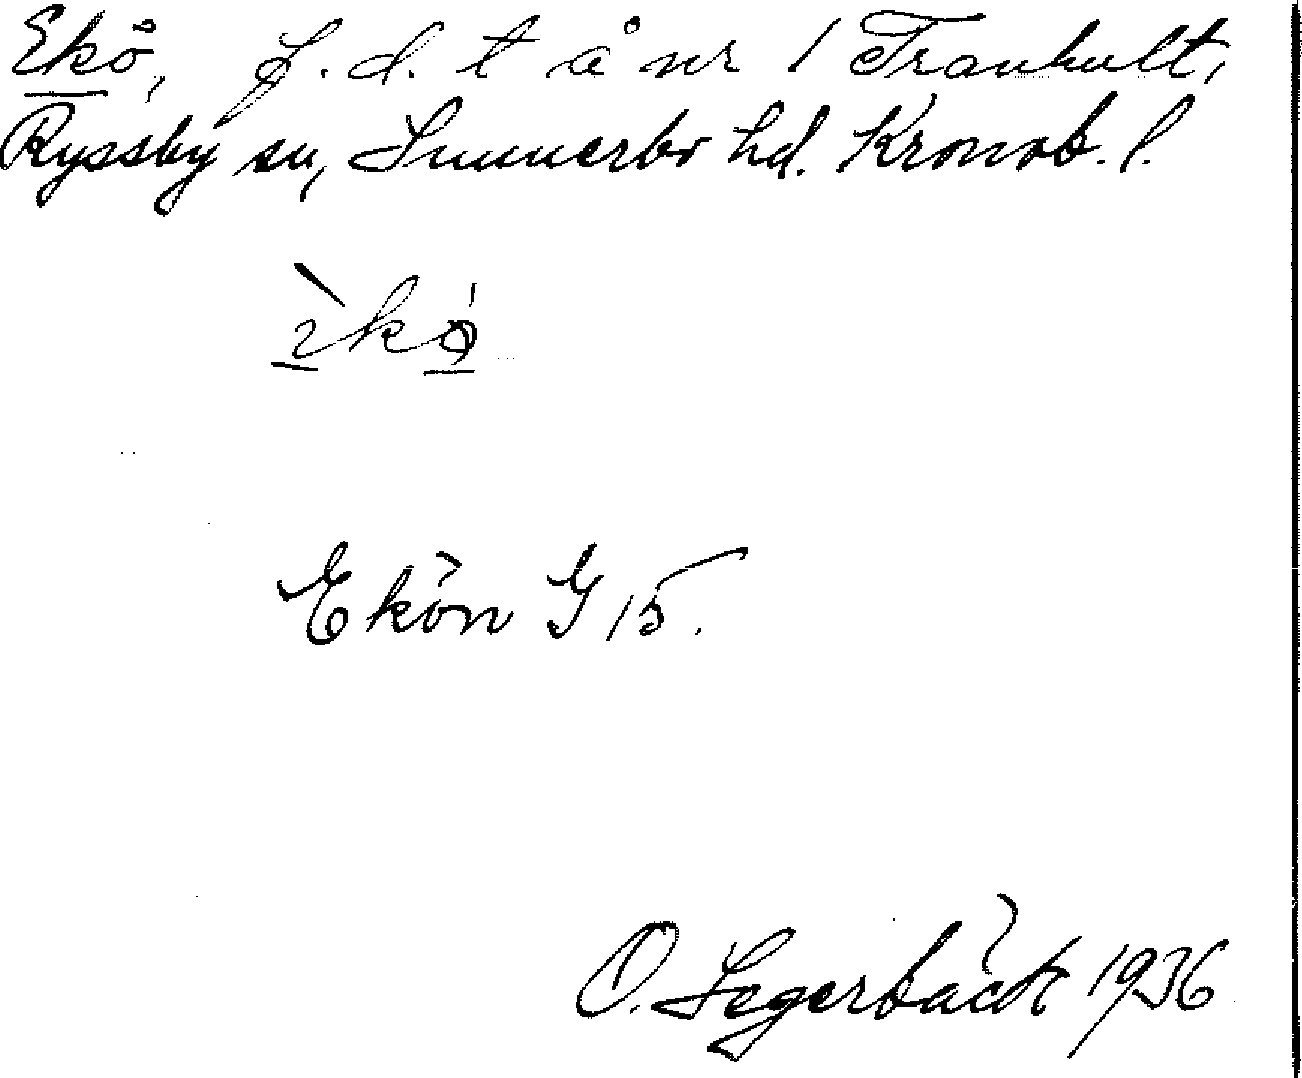 Ekö, f. d. t å nr 1 Tranhult,
Ryssby sn, Sunnerbo hd. Kronob. l.
Ekön G 15.
O. Segerbäck 1936